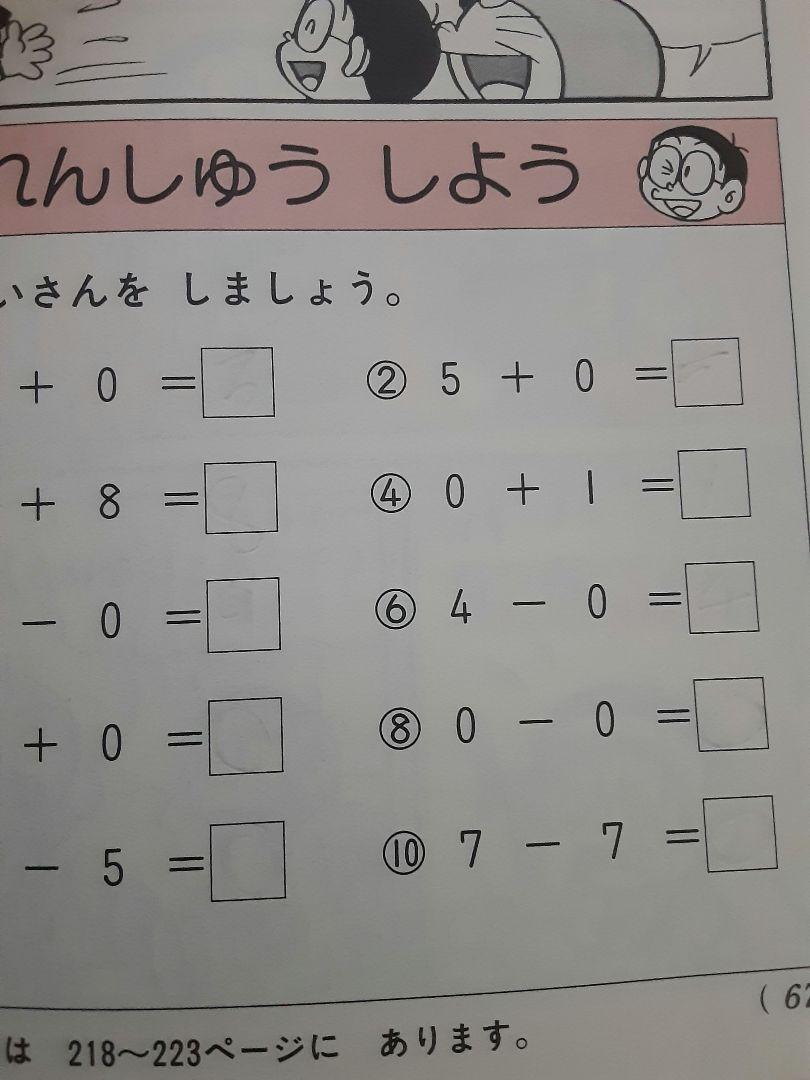 れんしゅう しよう
いさんを しましょう。
+ 0 = ② 5 + 0 =
+ 8 = ④ 0 + 1 =
− 0 = ⑥ 4 − 0 =
+ 0 = ⑧ 0 − 0 =
− 5 = ⑩ 7 − 7 =
( 62
は 218〜223ページに あります。